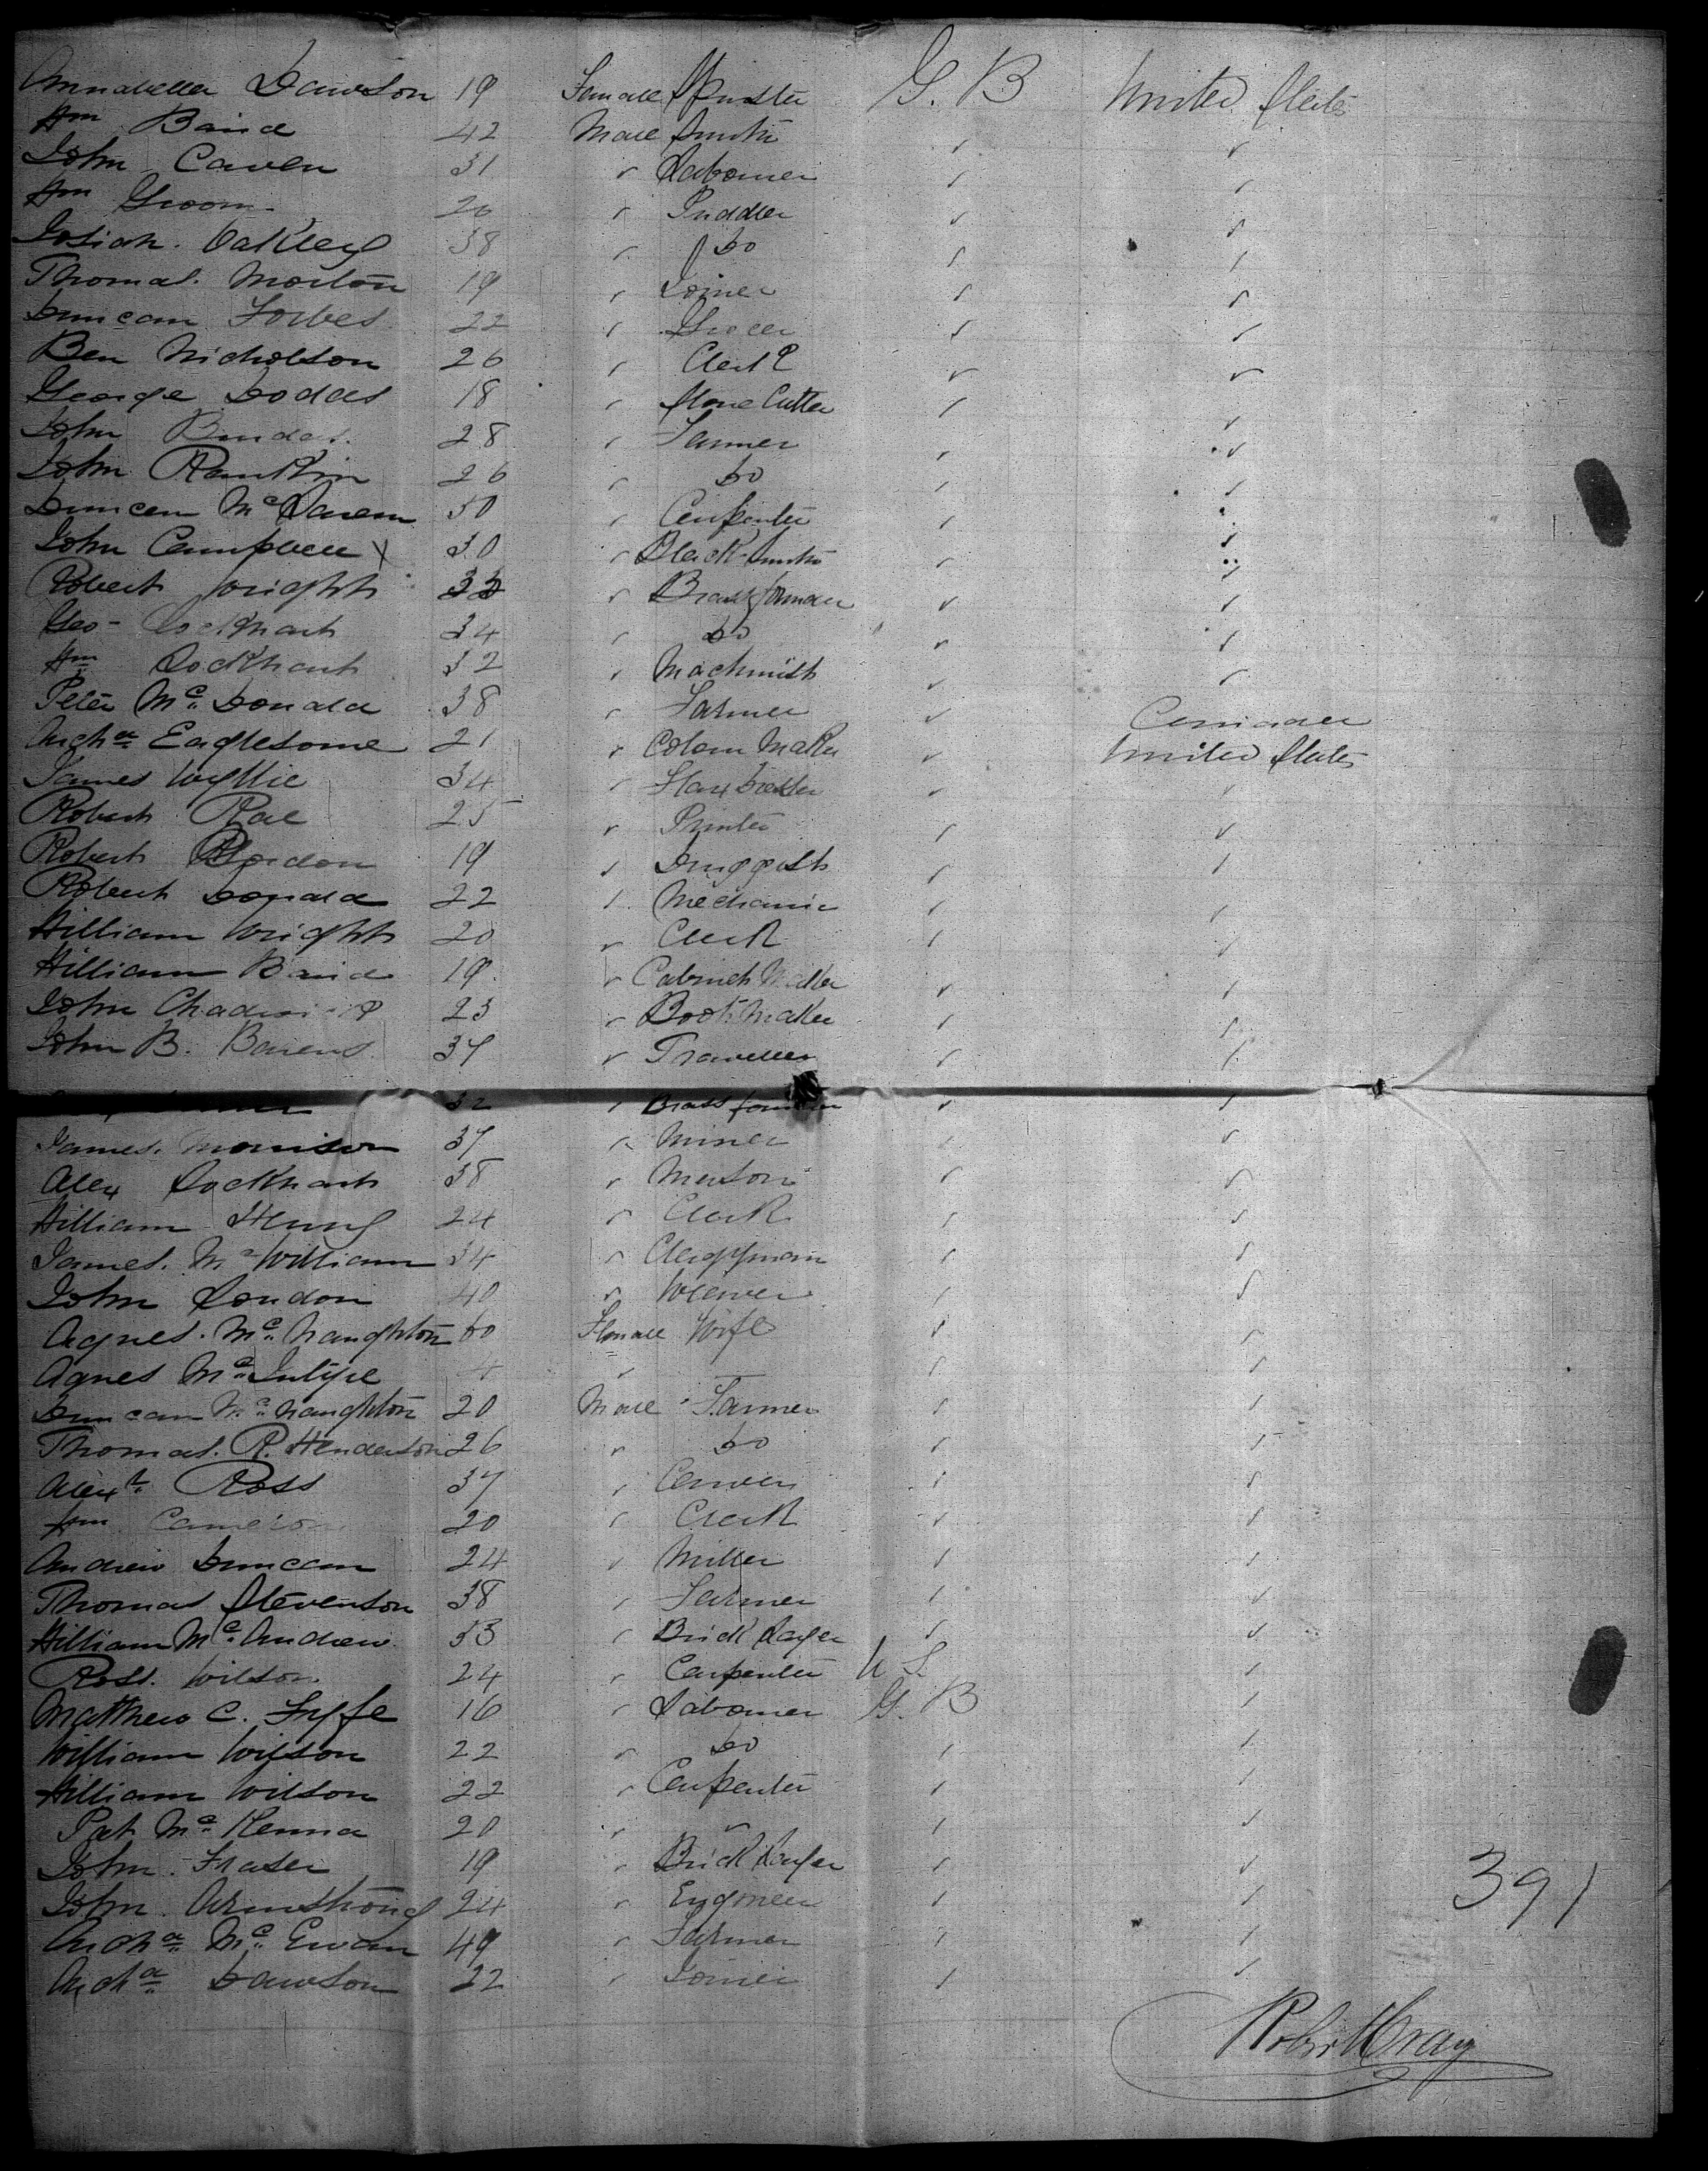 Annabella Dawson 19 Female Spinster G. B United States
Wm Baird 42 Male Smith ✓ ✓
John Caven 31 ✓ Labourer ✓ ✓
Wm Groom 26 ✓ Puddler ✓ ✓
Josiah. Oakley 38 ✓ Do ✓ ✓
Thomas. Morton 19 ✓ Joiner ✓ ✓
Duncan Forbes 22 ✓ Grocer ✓ ✓
Ben Nicholson 26 ✓ Clerk ✓ ✓
George Dodds 18 ✓ Stone Cutter ✓ ✓
John 28 ✓ Farmer ✓ ✓
John Rankin 26 ✓ Do ✓ ✓
Duncan Mc Laren 30 ✓ Carpenter ✓ ✓
John Campbell 30 ✓ Black Smith ✓ ✓
Robert Wright 33 ✓ Brassfounder ✓ ✓
Geo- Lockhart 34 ✓ Do ✓ ✓
Wm Lockhart 32 ✓ Machinist ✓ ✓
Peter Mc Donald 38 ✓ Farmer ✓ Canada
Archd Eaglesome 21 ✓ Colour Maker ✓ United States
James Wyllie 34 ✓ Flax Dresser ✓ ✓
Robert Rae 25 ✓ Printer ✓ ✓
Robert 19 ✓ Druggist ✓ ✓
Robert Donald 22 ✓ Mechanic ✓ ✓
William Wright 20 ✓ Clerk ✓ ✓
William Baird 19 ✓ Cabinet Maker ✓ ✓
John Chadwick 23 ✓ Boot Maker ✓ ✓
John B. 37 ✓ Traveller ✓ ✓
32 ✓ Brass founder ✓ ✓
James. Morrison 37 ✓ Miner ✓ ✓
Alex Lockhart 38 ✓ Mason ✓ ✓
William Henry 24 ✓ Clerk ✓ ✓
James. Mc William 34 ✓ Clergyman ✓ ✓
John Loudon 40 ✓ Weaver ✓ ✓
Agnes. Mc Naughton 60 Female Wife ✓ ✓
Agnes Mc Intyre 4 ✓ — ✓ ✓
Duncan Mc Naughton 20 Male Farmer ✓ ✓
Thomas. R. Henderson 26 ✓ Do ✓ ✓
Alexr Ross 37 ✓ Carver ✓ ✓
Wm Cameron 20 ✓ Clerk ✓ ✓
Andrew Duncan 24 ✓ Miller ✓ ✓
Thomas Stevenson 38 ✓ Farmer ✓ ✓
William Mc Andrew 33 ✓ Brick Layer ✓ ✓
Ross. Wilson 24 ✓ Carpenter U S. ✓
Matthew C. Fyfe 16 ✓ Labourer G. B ✓
William Wilson 22 ✓ Do ✓ ✓
William Wilson 22 ✓ Carpenter ✓ ✓
Pat Mc Kenna 20 ✓ ✓ ✓ ✓
John Fraser 19 ✓ Brick Layer ✓ ✓
John Armstrong 24 ✓ Engineer ✓ ✓
Archd Mc Ewan 49 ✓ Farmer ✓ ✓
Archd Dawson 22 ✓ Joiner ✓ ✓
391
Robt Craig